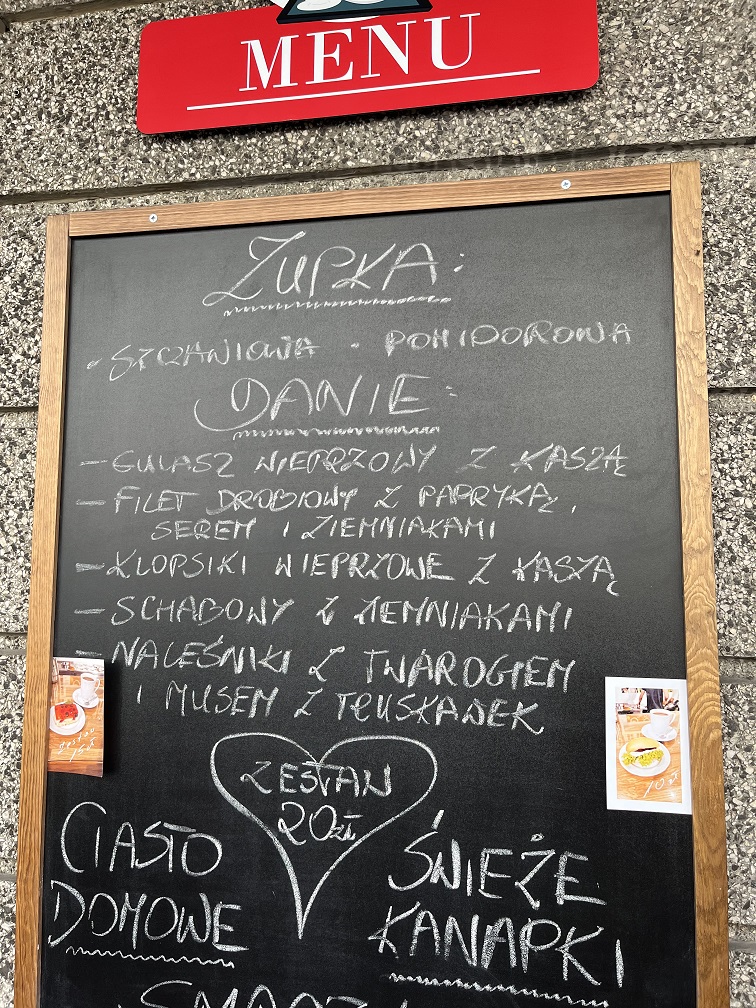 MENU
ZUPKA:
• SZCZAWIOWA • POMIDOROWA
DANIE:
- GULASZ WIEPRZOWY Z KASZĄ
- FILET DROBIOWY Z PAPRYKĄ,
SEREM I ZIEMNIAKAMI
- KLOPSIKI WIEPRZOWE Z KASZĄ
- SCHABOWY Z ZIEMNIAKAMI
- NALEŚNIKI Z TWAROGIEM
I MUSEM Z TRUSKAWEK
zestaw
15zł
10 zł
ZESTAW
20zł
CIASTO
DOMOWE
ŚWIEŻE
KANAPKI